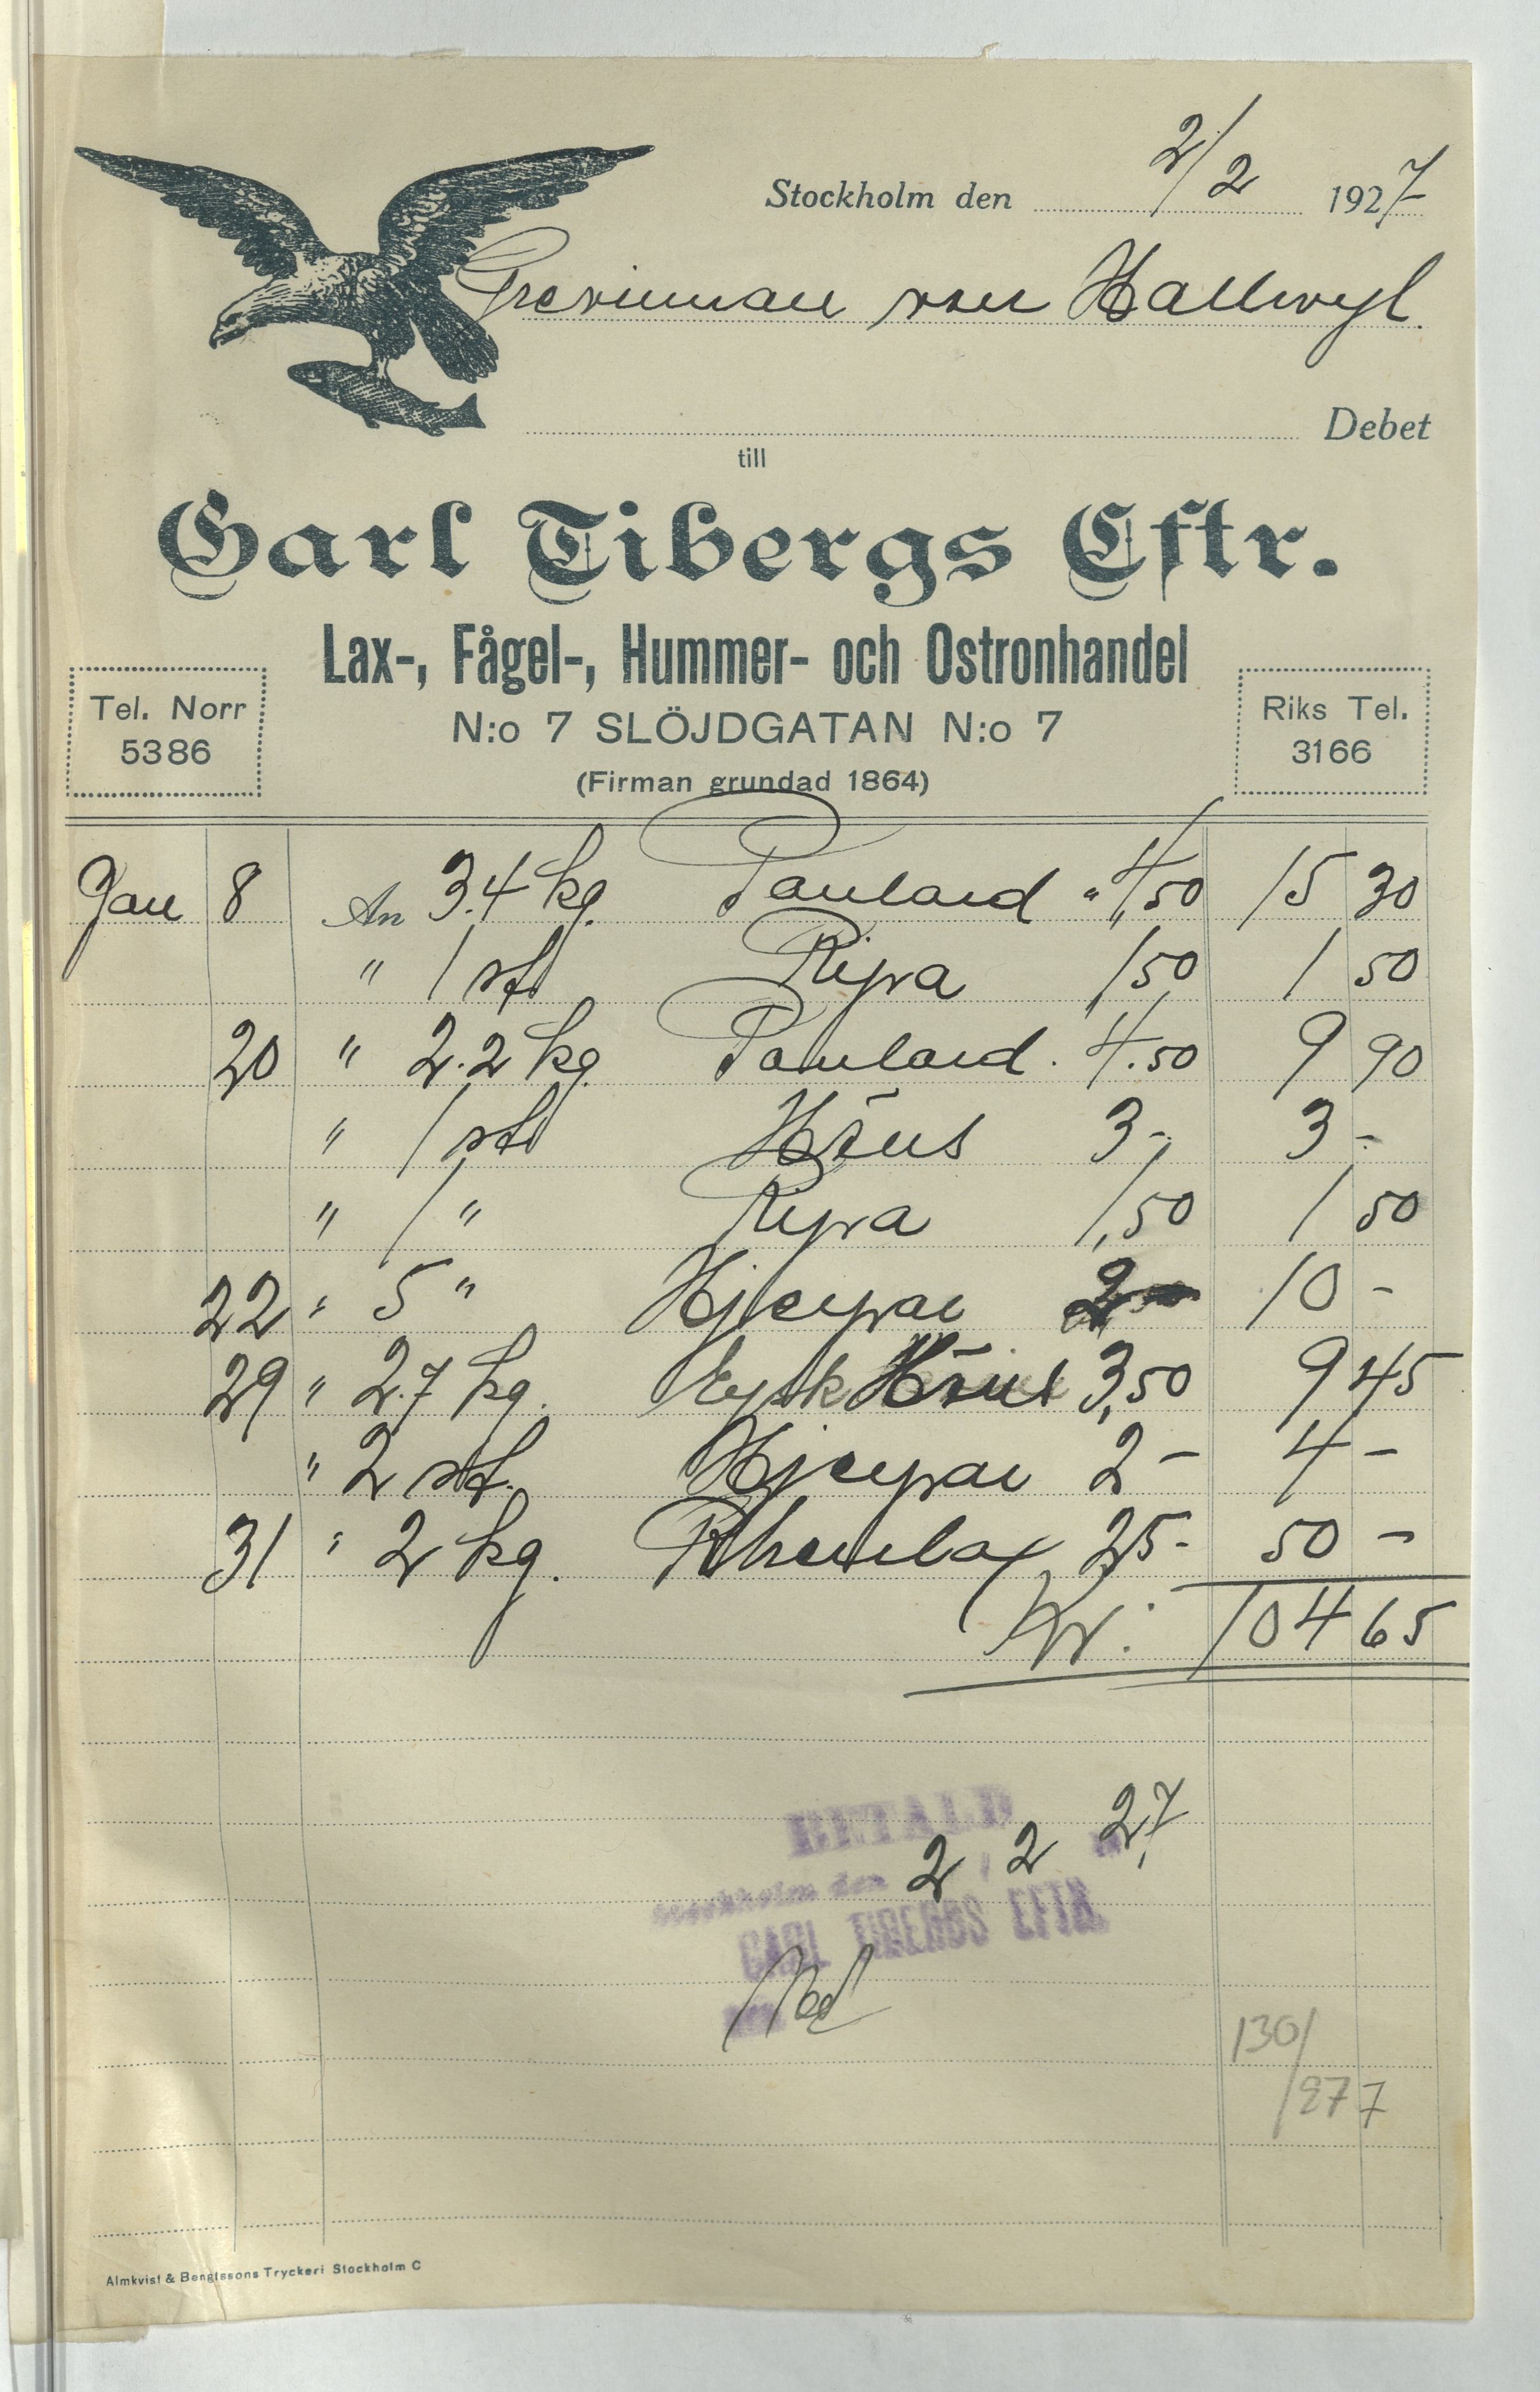 Stockholm den 2/2 1927
Grevinnan von Hallwyl.
Debet
till
Carl Tibergs Eftr.
Lax-, Fågel-, Hummer- och Ostronhandel
Tel. Norr
5386
N:o 7 SLÖJDGATAN N:o 7
(Firman grundad 1864)
Riks Tel.
3166
Jan 8 An 3.4 kg. Poulard " 4,50 15 30
" 1 st Ripa 1 50 1 50
20 " 2.2 kg. Poulard. 4.50 9 90
" 1 st Höns 3 - 3 -
" 1 " Ripa 1,50 1 50
22 " 5 " Hjerpar 2 - 10 -
29 " 2.7 kg. Rysk Höns 3,50 9 45
" 2 st. Hjerpar 2 - 4 -
31 " 2 kg. Rhenlax 25 - 50 -
Kr: 104 65
BETALD
Stockholm den 2 / 2 27
CARL TIBERGS EFTR.
130/
/277
Almkvist & Bengtssons Tryckeri Stockholm C